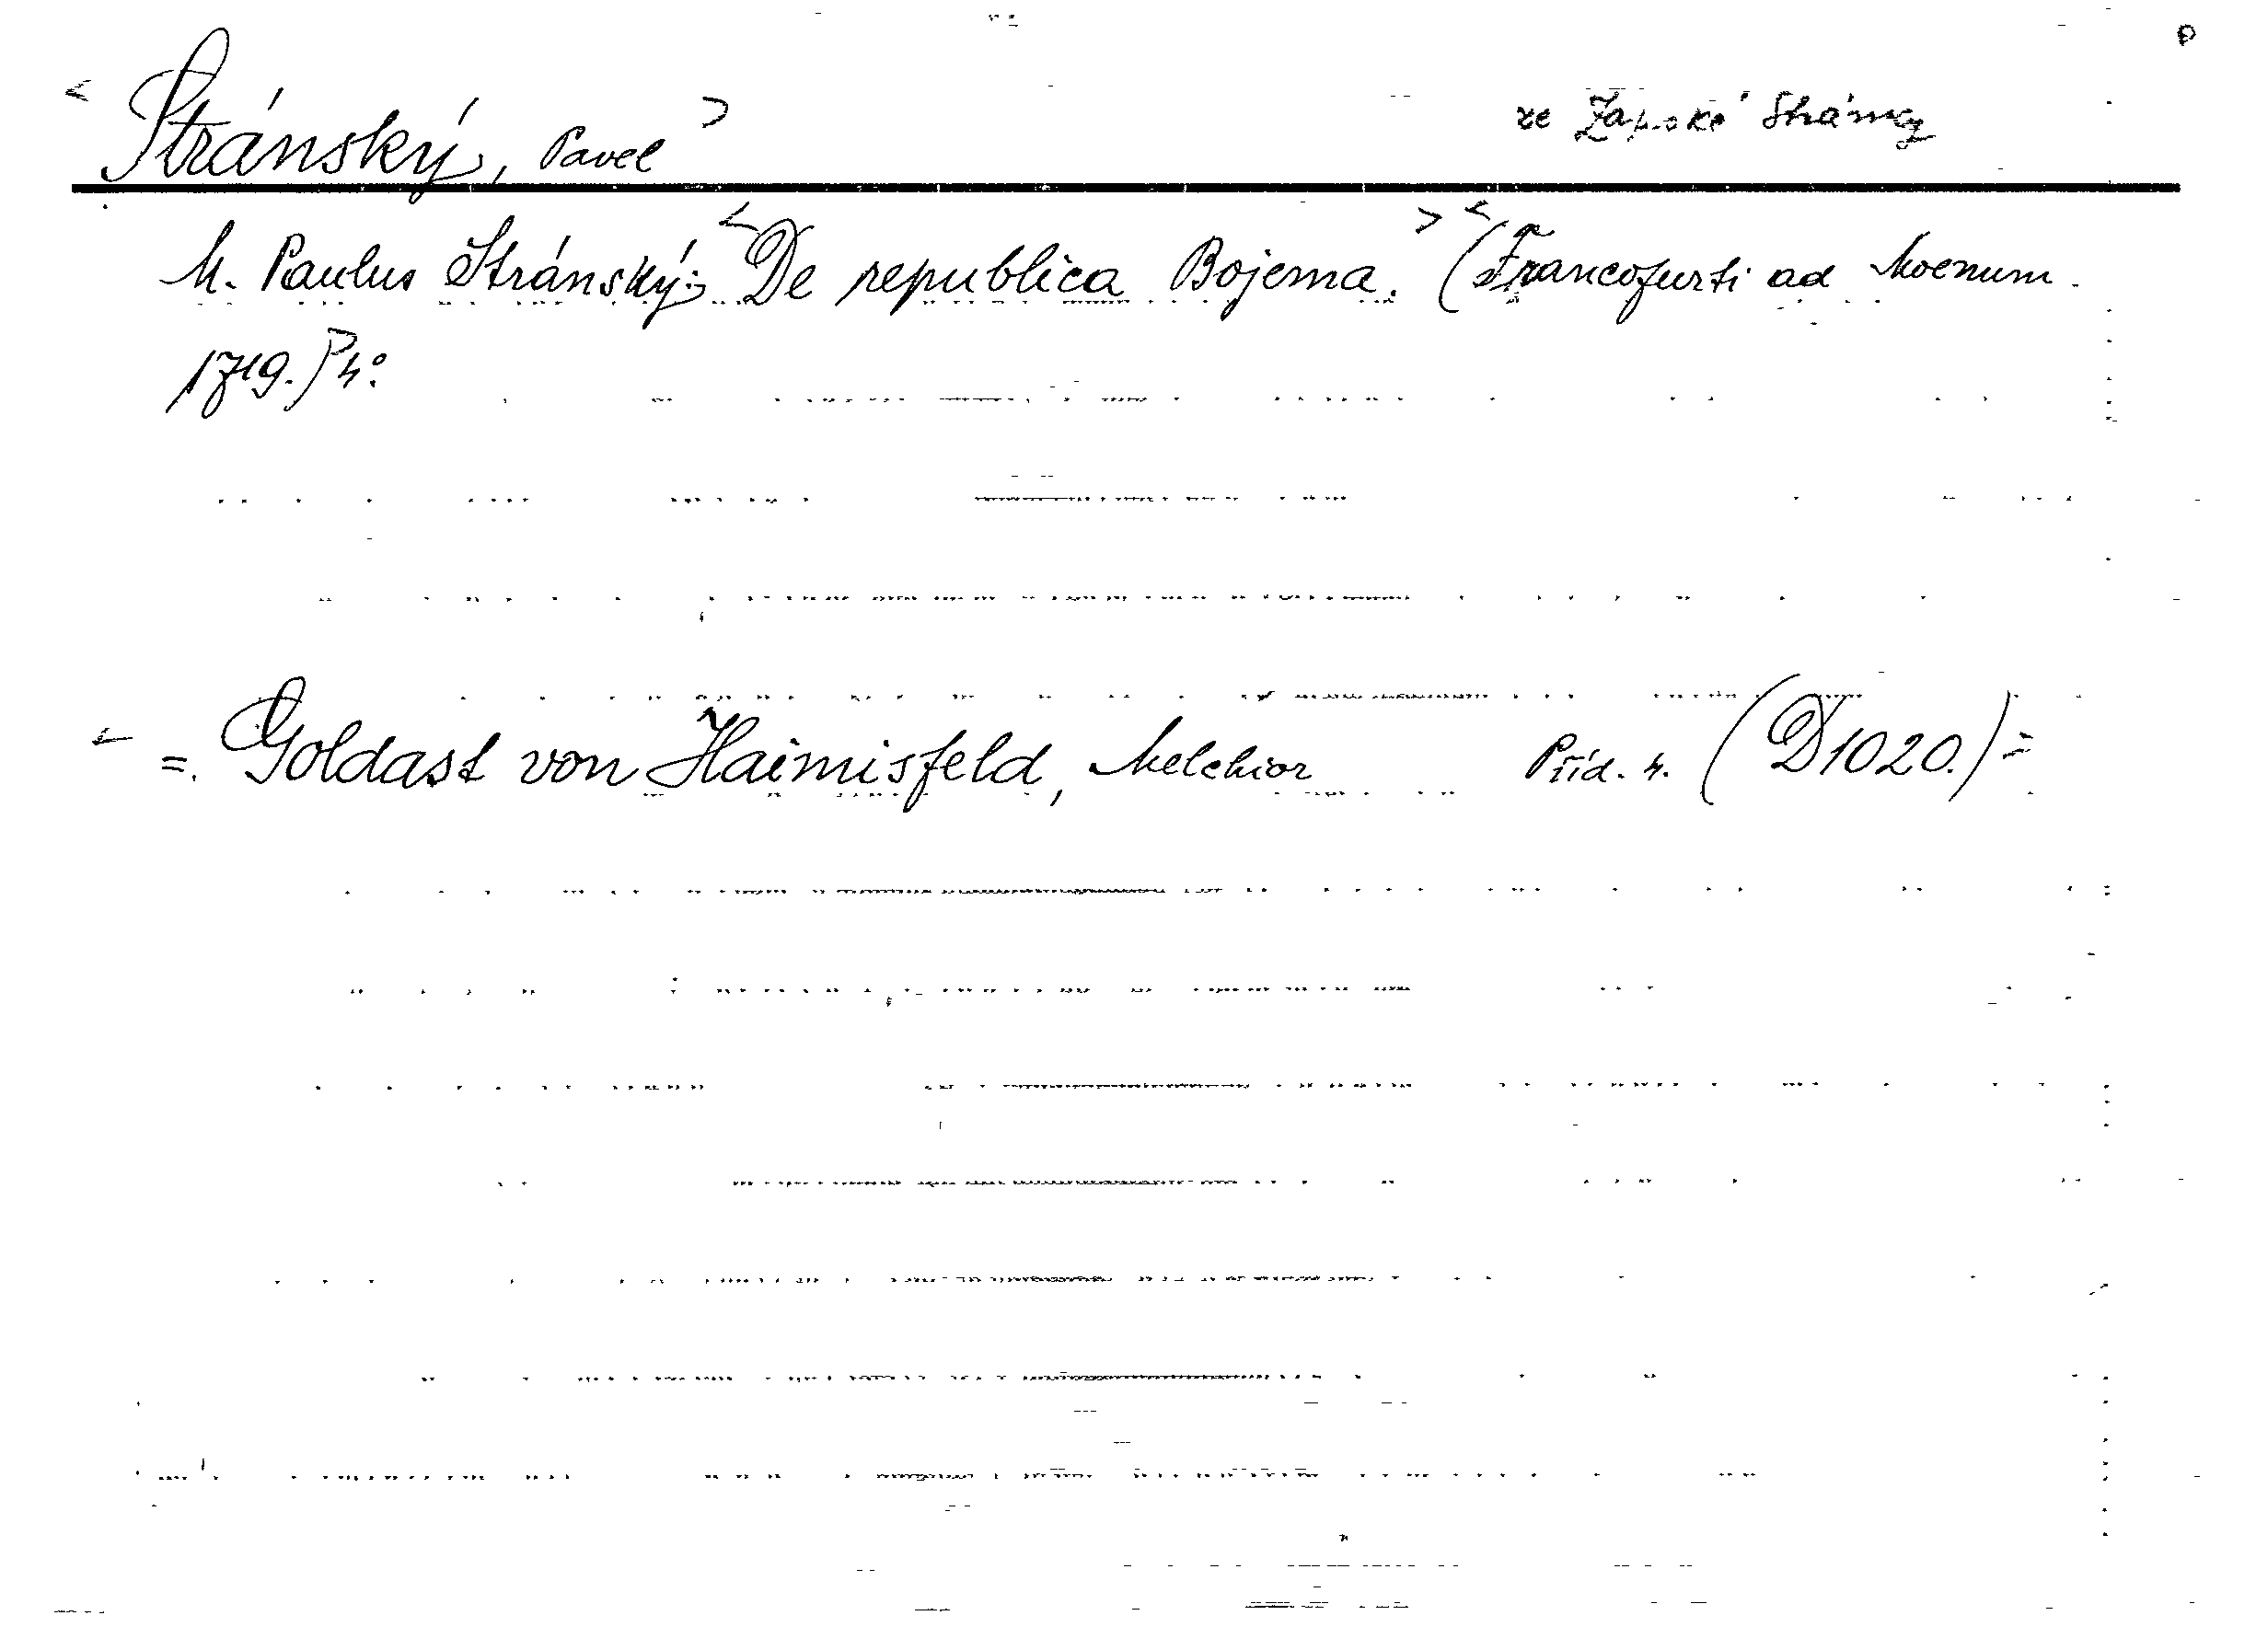 < Stránský, Pavel > ze Zapské Stránky
M. Paulus Stránský: <De republica Bojema.> <(Francofurti ad Moenum
1719.)> 4°.
< =. Goldast von Haimisfeld, Melchior Příd. 4. (D 1020.) =